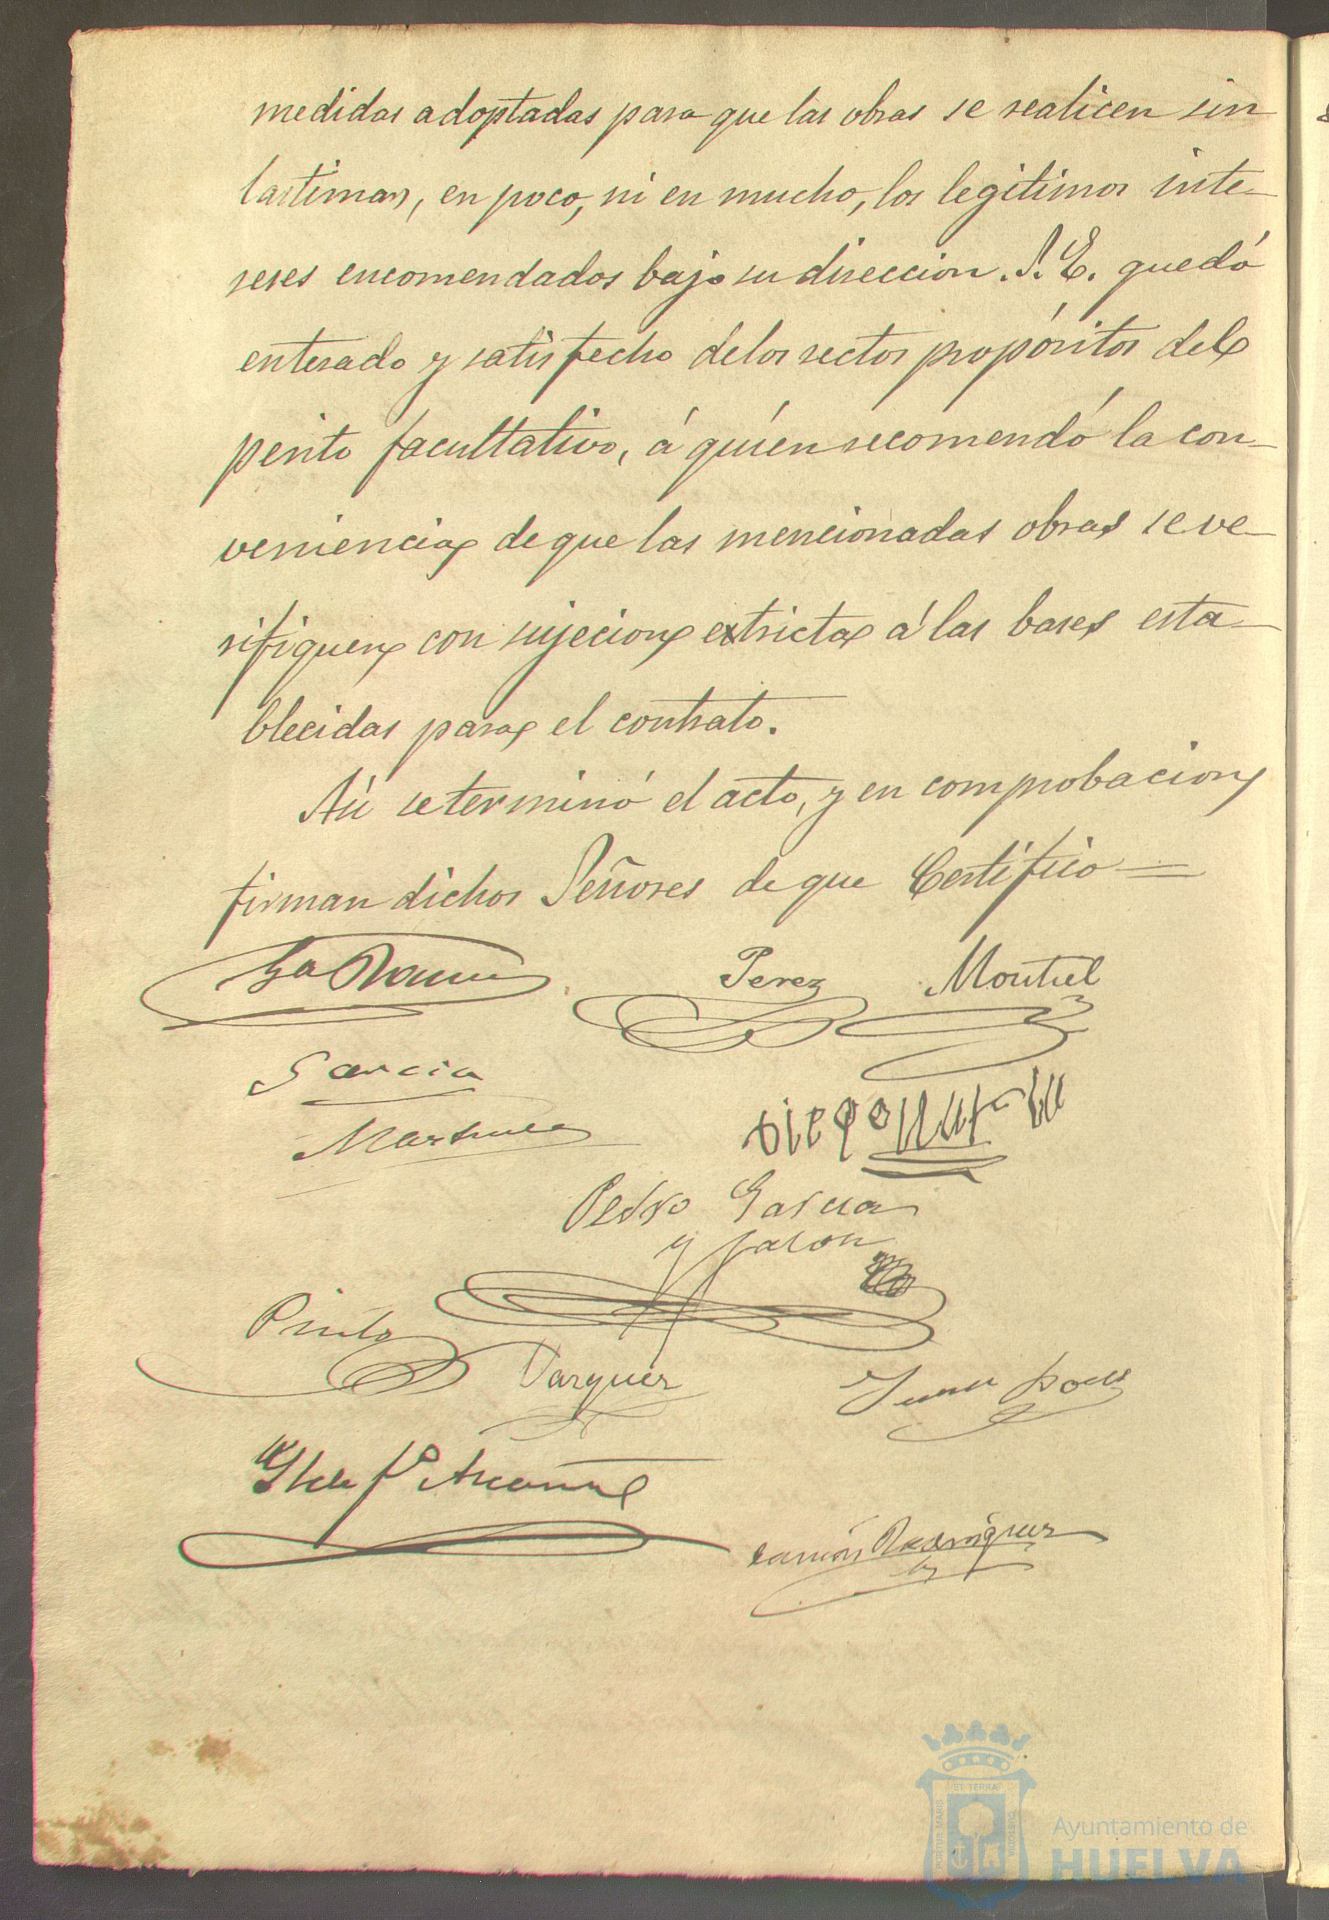 medidas adoptadas para que las obras se realicen sin
lastimar, en poco, ni en mucho, los legitimos inte-
reses encomendados bajo su direccion. S. E. quedó
enterado y satisfecho de los rectos propósitos del
perito facultativo, á quien recomendó la con-
veniencia de que las mencionadas obras se ve-
rifiquen con sujecion extricta á las bases esta-
blecidas para el contrato.
Así se terminó el acto, y en comprobacion
firman dichos Señores de que Certifico =
Perez Montiel
Garcia
Martinez
Diego
Pedro Garcia
y Jalon
Pinto
Vazquez
Ramón Rodriguez
PORTUS MARIS ET TERRAE CUSTODIA
Ayuntamiento de
HUELVA